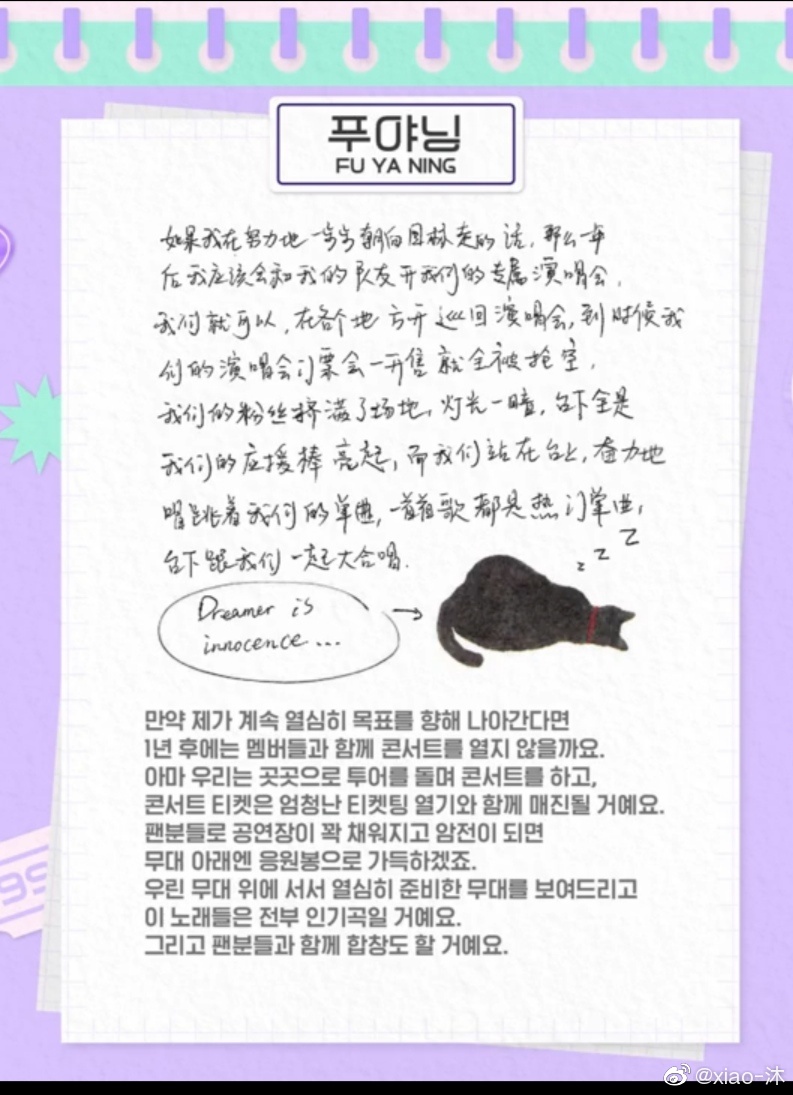 푸야닝
FU YA NING
如果我在努力地一步步朝向目标走的话，那么一年
后我应该会和我的队友开我们的专属演唱会，
我们就可以，在各个地方开巡回演唱会，到时候我
们的演唱会门票会一开售就全被抢空，
我们的粉丝挤满了场地，灯光一暗，台下全是
我们的应援棒亮起，而我们站在台上，奋力地
唱跳着我们的单曲，一首首歌都是热门单曲，
台下跟我们一起大合唱.
z z Z
Dreamer is
innocence...
만약 제가 계속 열심히 목표를 향해 나아간다면
1년 후에는 멤버들과 함께 콘서트를 열지 않을까요.
아마 우리는 곳곳으로 투어를 돌며 콘서트를 하고,
콘서트 티켓은 엄청난 티켓팅 열기와 함께 매진될 거예요.
팬분들로 공연장이 꽉 채워지고 암전이 되면
무대 아래엔 응원봉으로 가득하겠죠.
우린 무대 위에 서서 열심히 준비한 무대를 보여드리고
이 노래들은 전부 인기곡일 거예요.
그리고 팬분들과 함께 합창도 할 거예요.
99
@xiao-沐